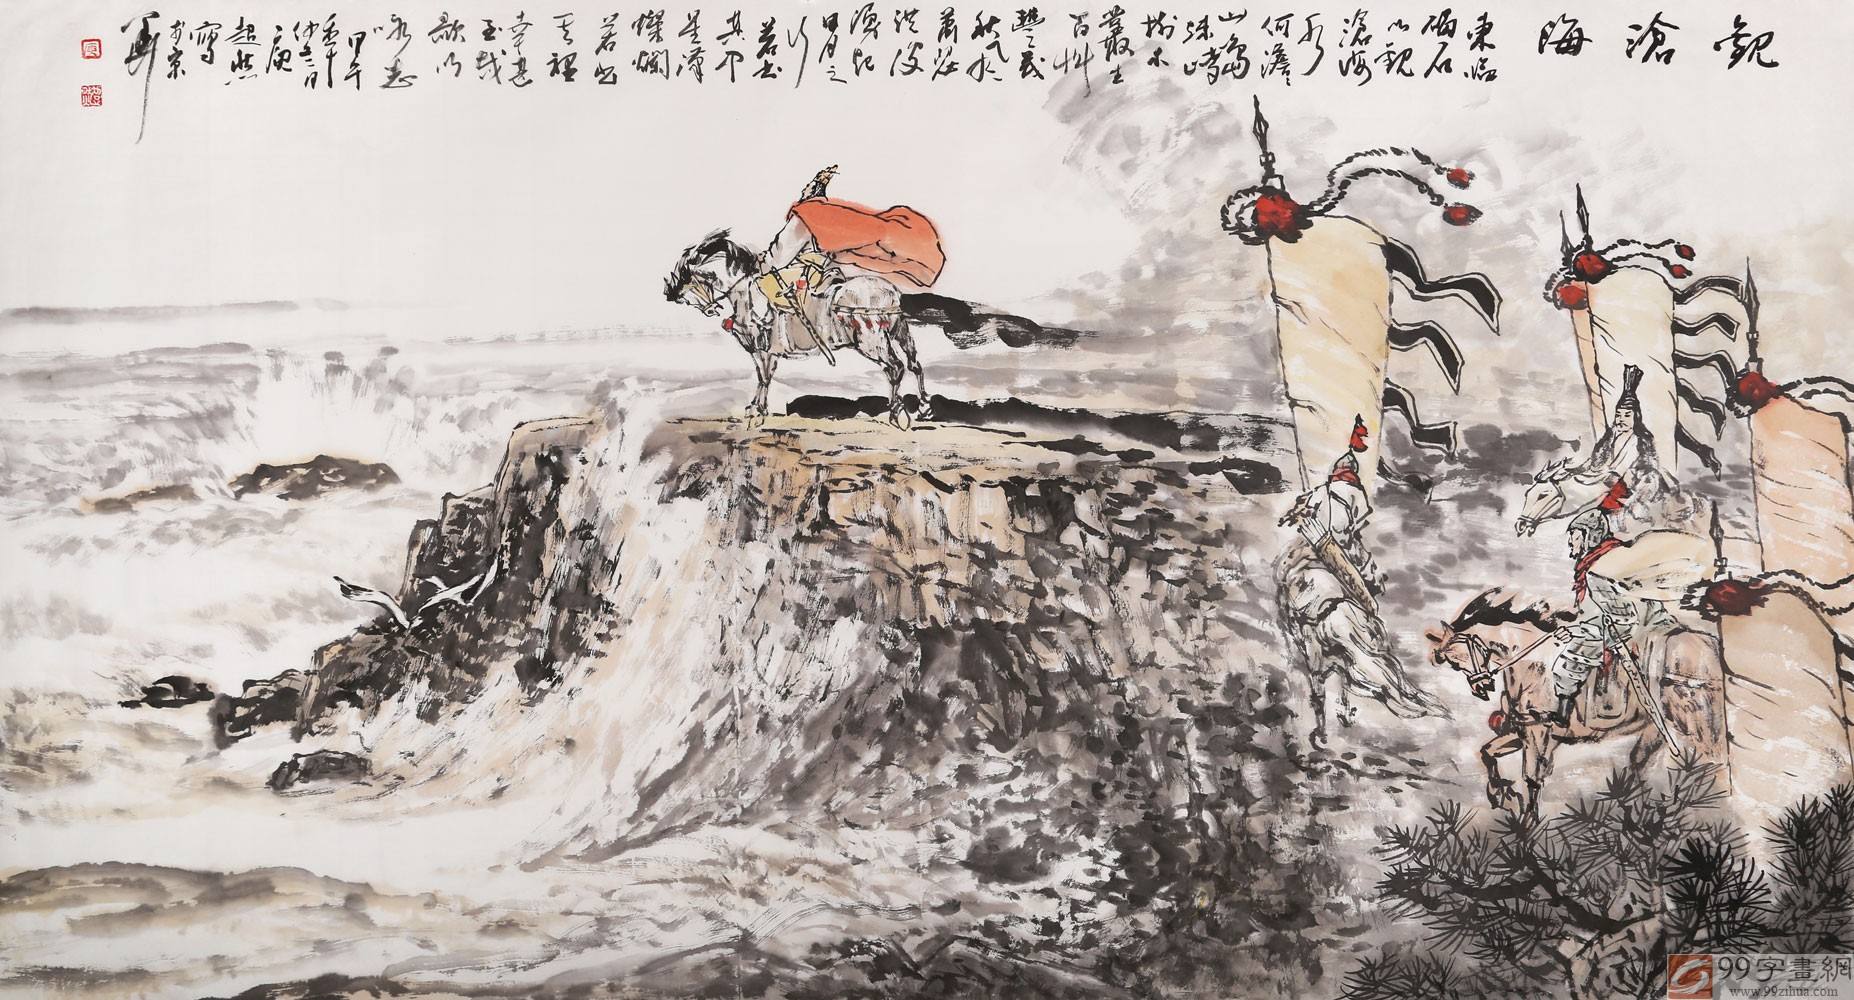 觀滄海
東臨
碣石
以觀
滄海
水
何澹〻
山島
竦峙
樹木
叢生
百艸
豐茂
秋风
蕭瑟
洪波
湧起
日月之
行
若出
其中
星漢
燦爛
若出
其裡
幸甚
至哉
歌以
咏志
甲午
寫
於京
99字畫網
www.99zihua.com